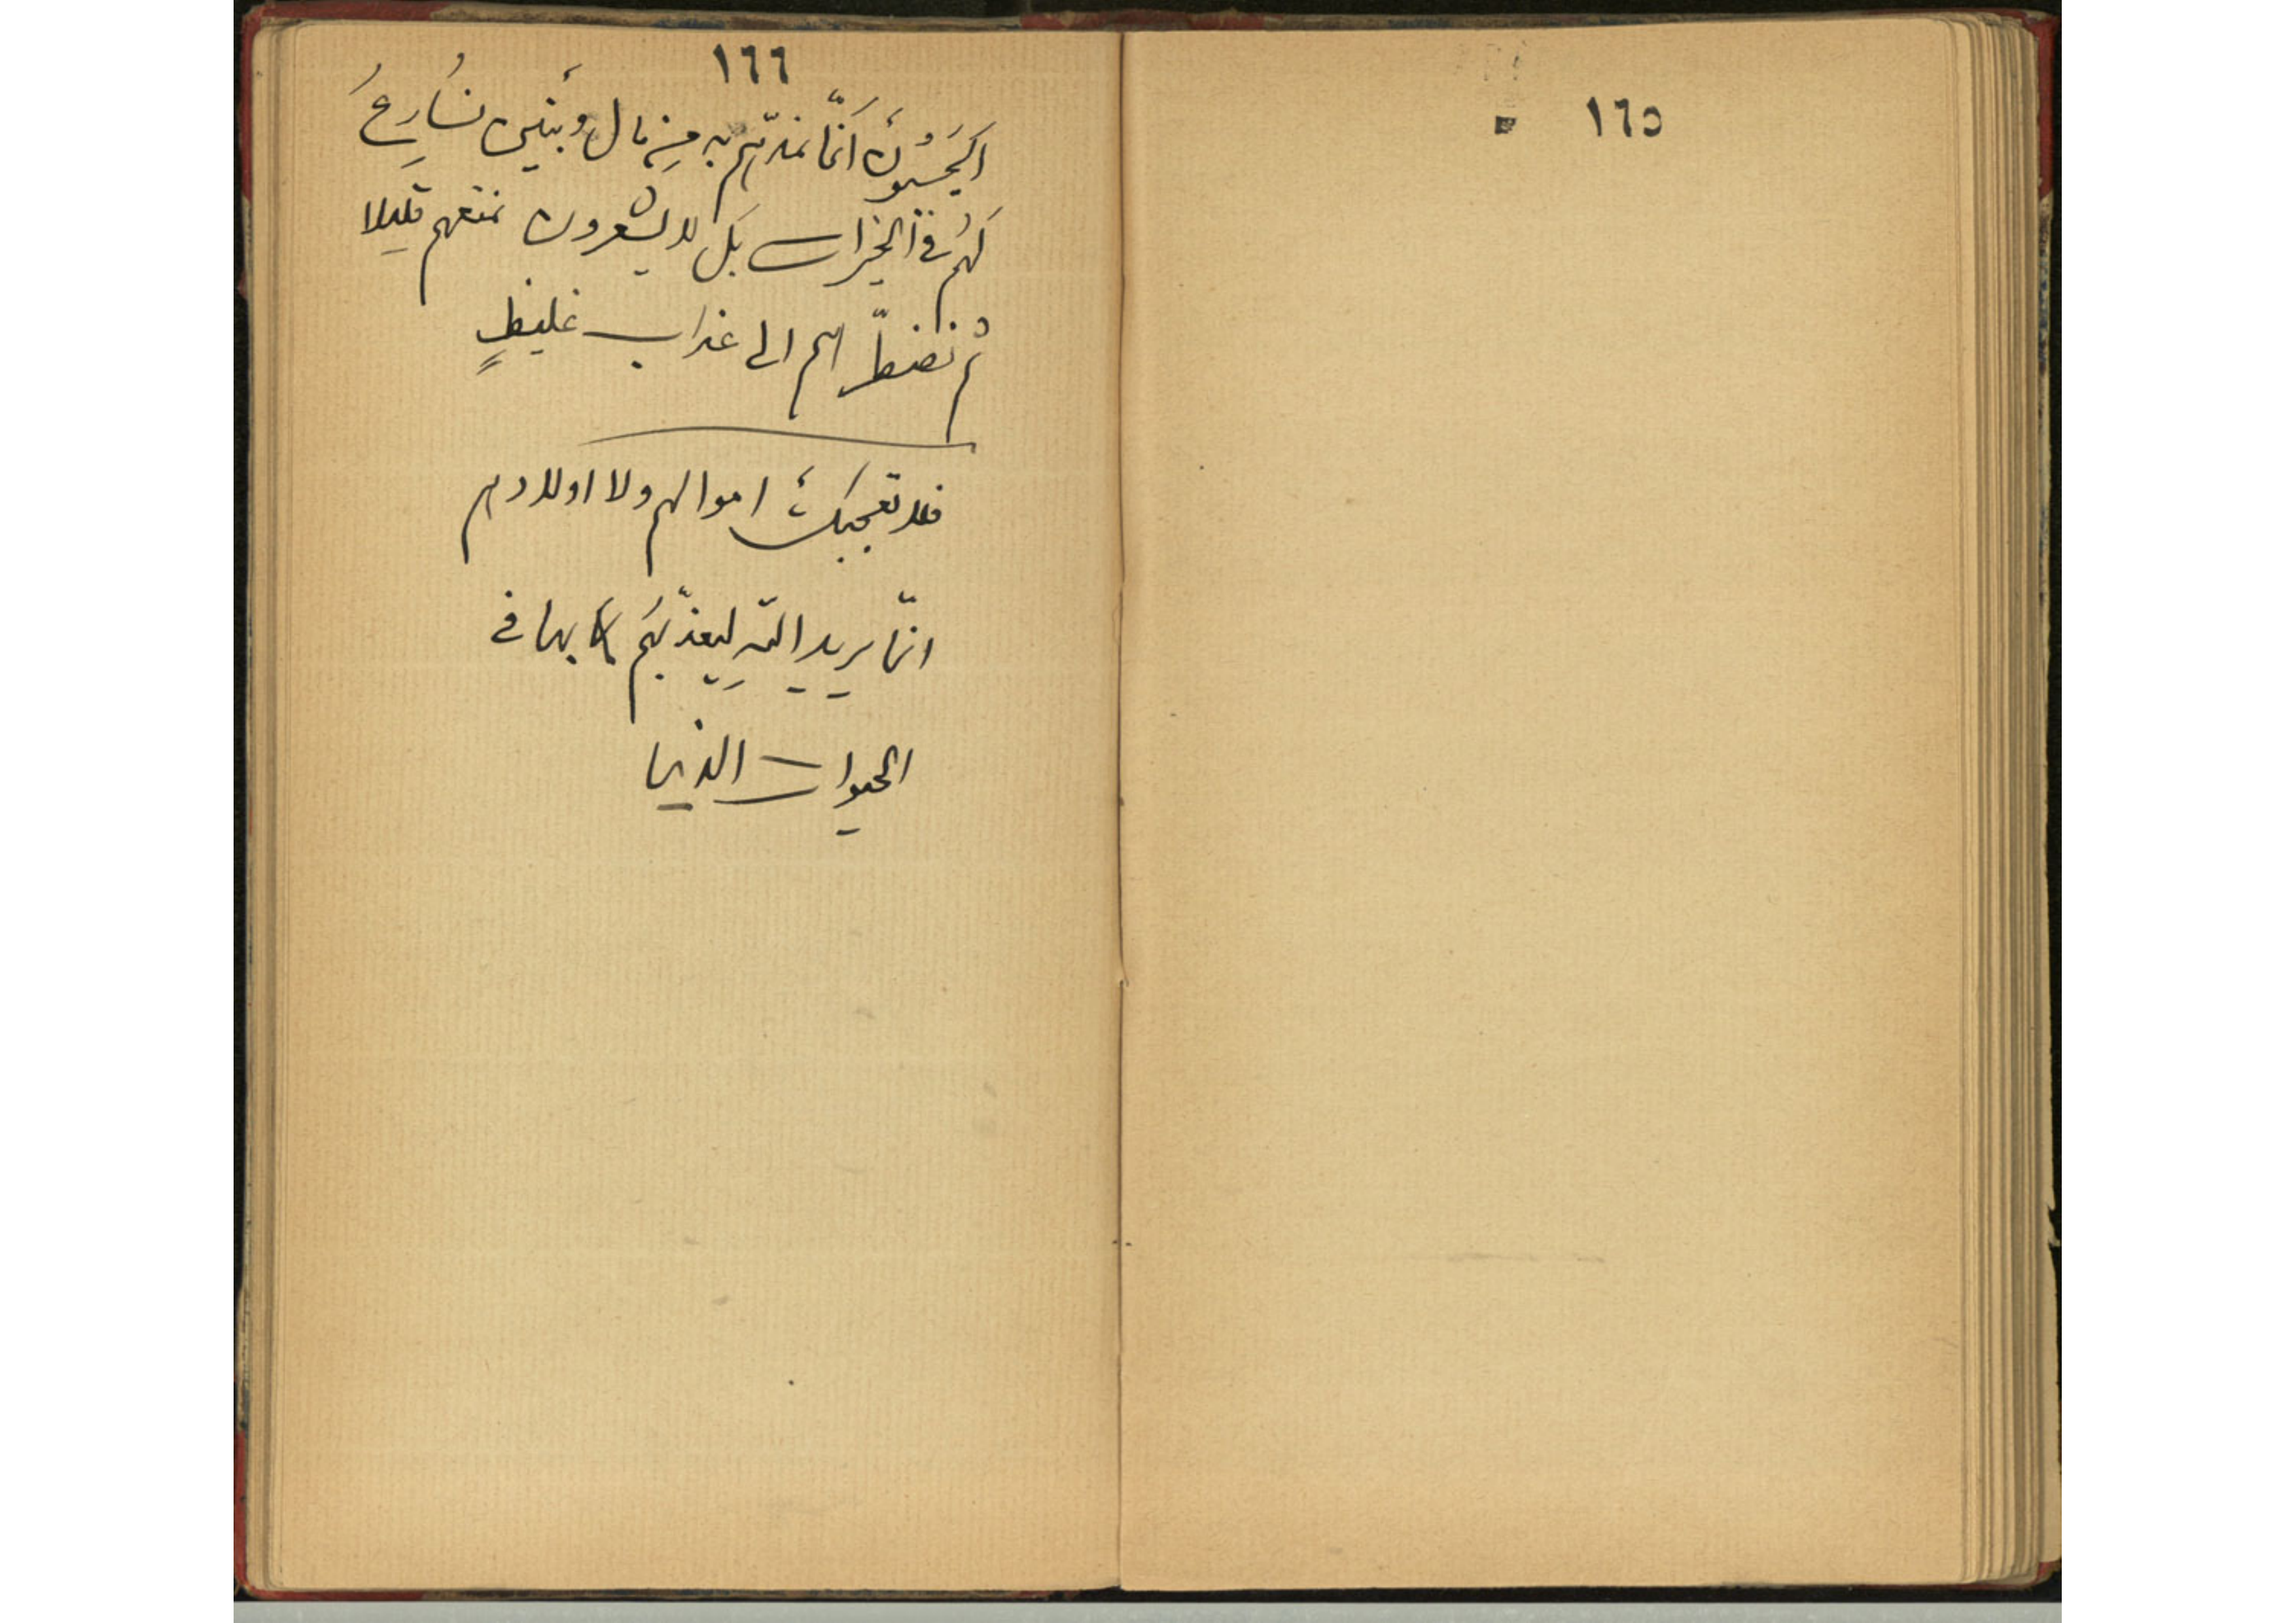 ١٦٥
١٦٦
ايَحسَبُونَ انَّمَا نمدّهم به مِن مال وبَنين نُسَارِعُ
لَهُم في الخيرات بَل لا يشعرون نمتعهم قليلا
ثم نضطرّ هم الى عذاب غليظٍ
فلا تعجبكَ اموالهم ولا اولادهم
انّما يريد الله لِيعذّبَهُم بها فى
الحيوات الدنيا